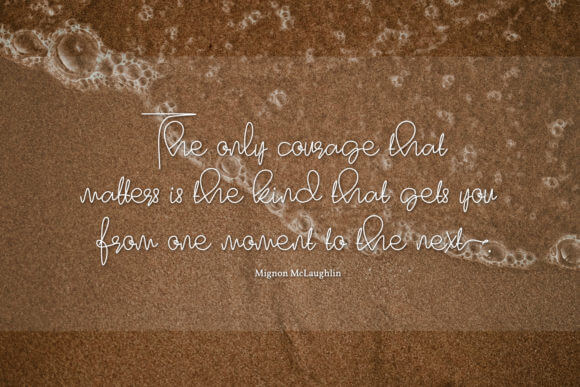 The only courage that
matters is the kind that gets you
from one moment to the next.
Mignon McLaughlin